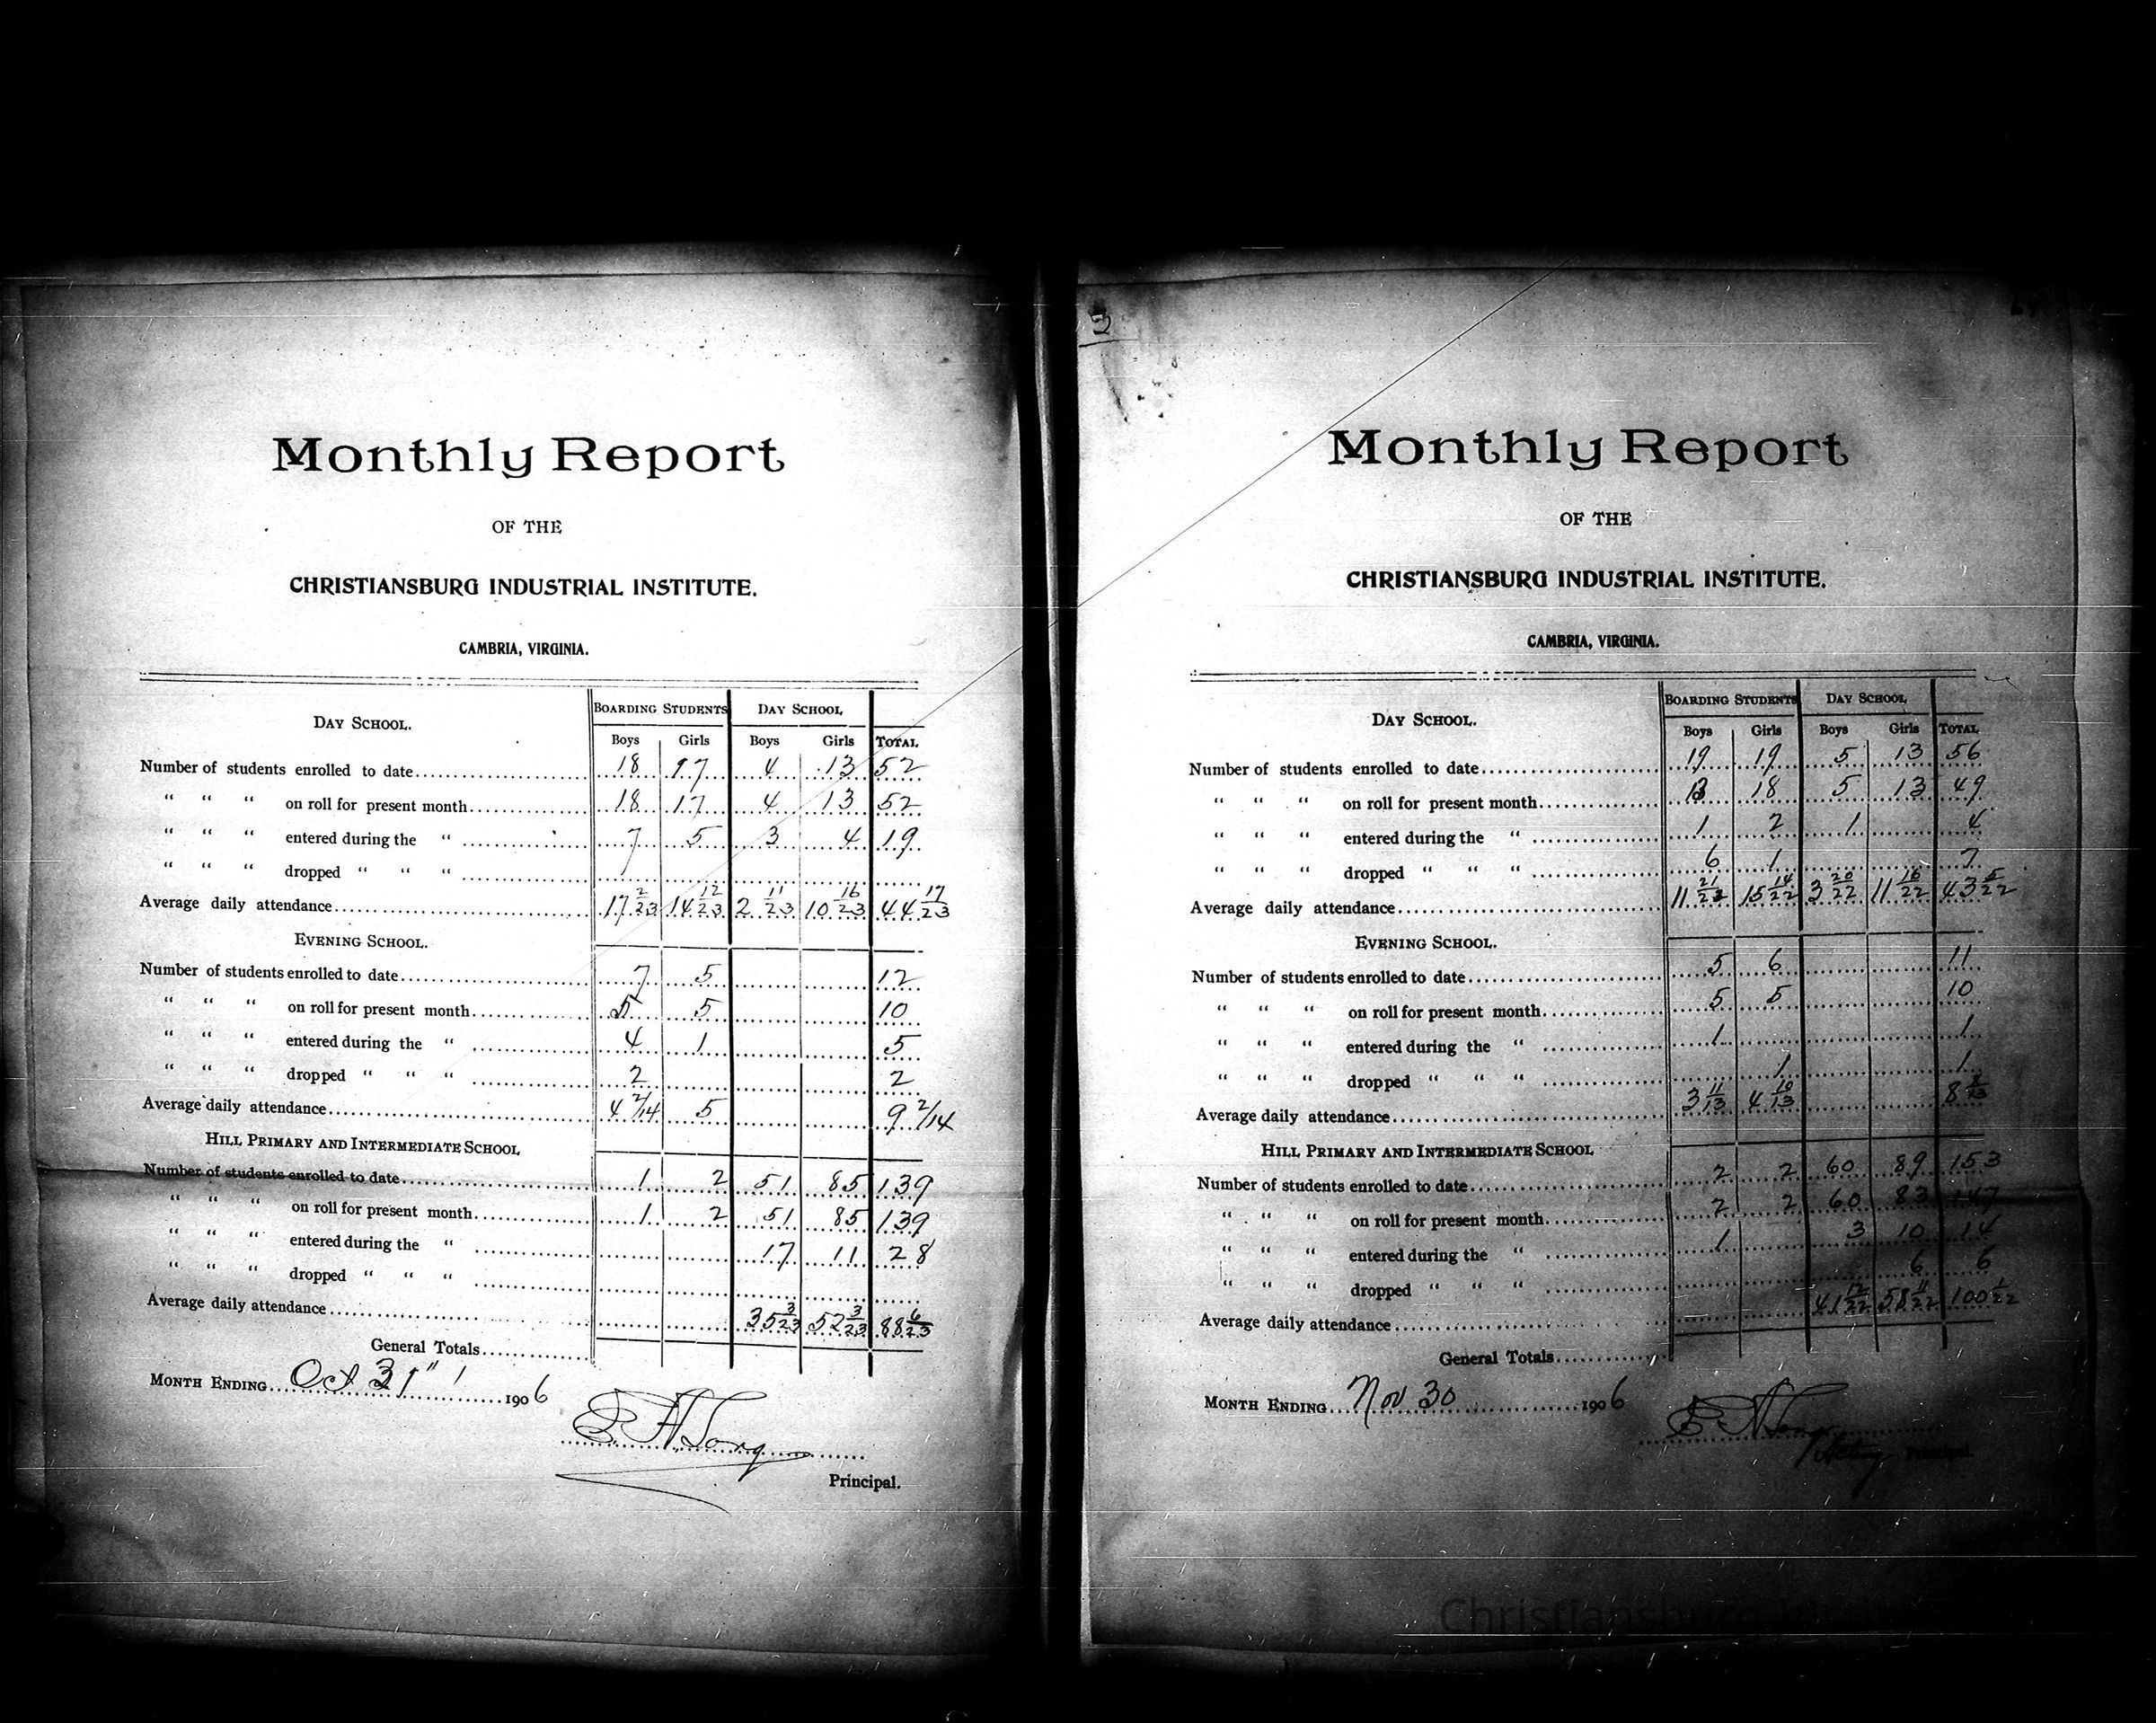 Monthly Report
OF THE
CHRISTIANSBURG INDUSTRIAL INSTITUTE.
CAMBRIA, VIRGINIA.
BOARDING STUDENTS DAY SCHOOL
DAY SCHOOL.
Boys Girls Boys Girls TOTAL
Number of students enrolled to date 18 17 4 13 52
" " " on roll for present month 18 17 4 13 52
" " " entered during the " 7 5 3 4 19
" " " dropped " " "
Average daily attendance 17 2/23 14 12/23 2 11/23 10 16/23 44 17/23
EVENING SCHOOL.
Number of students enrolled to date 7 5 12
" " " on roll for present month 5 5 10
" " " entered during the " 4 1 5
" " " dropped " " " 2 2
Average daily attendance 4 2/14 5 9 2/14
HILL PRIMARY AND INTERMEDIATE SCHOOL
Number of students enrolled to date 1 2 51 85 139
" " " on roll for present month 1 2 51 85 139
" " " entered during the " 17 11 28
" " " dropped " " "
Average daily attendance 35 3/23 52 3/23 88 6/23
General Totals
MONTH ENDING Oct 31" 1906
E. A. Long
Principal.
2
Monthly Report
OF THE
CHRISTIANSBURG INDUSTRIAL INSTITUTE.
CAMBRIA, VIRGINIA.
BOARDING STUDENTS DAY SCHOOL
DAY SCHOOL.
Boys Girls Boys Girls TOTAL
Number of students enrolled to date 19 19 5 13 56
" " " on roll for present month 13 18 5 13 49
" " " entered during the " 1 2 1 4
" " " dropped " " " 6 1 7
Average daily attendance 11 21/22 15 14/22 3 20/22 11 16/22 43 5/22
EVENING SCHOOL.
Number of students enrolled to date 5 6 11
" " " on roll for present month 5 5 10
" " " entered during the " 1 1
" " " dropped " " " 1 1
Average daily attendance 3 11/13 4 10/13 8 8/13
HILL PRIMARY AND INTERMEDIATE SCHOOL
Number of students enrolled to date 2 2 60 89 153
" " " on roll for present month 2 2 60 83 147
" " " entered during the " 1 3 10 14
" " " dropped " " " 6 6
Average daily attendance 41 12/22 58 11/22 100 1/22
General Totals
MONTH ENDING Nov 30 1906
E A Long
Principal
Christiansburg